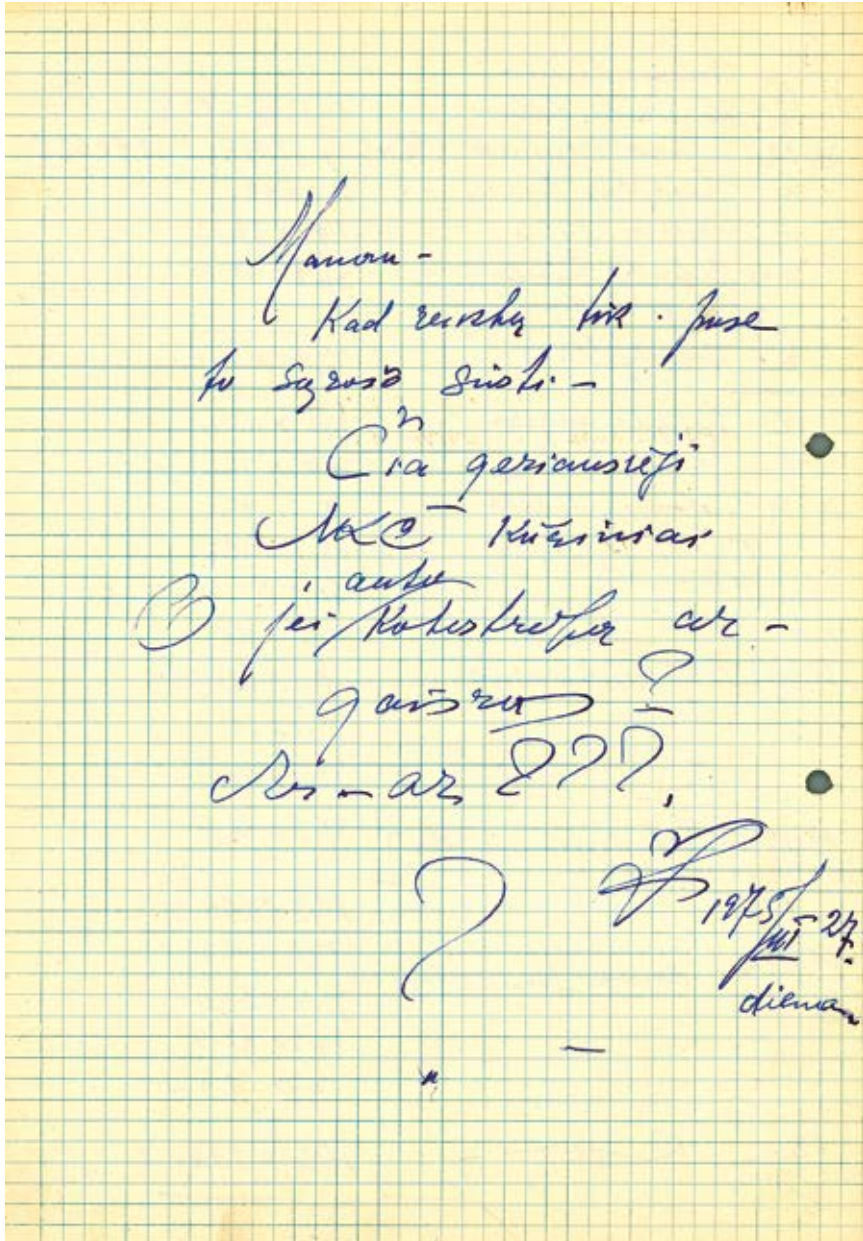 Manau -
Kad reiktų tik. puse
to sąrašo siųsti -
Čia geriausieji
MKČ Kūriniai
auto
jei Katastrofa ar -
gaisras ?
ar ???
1975/VII - 27.
dieną
?